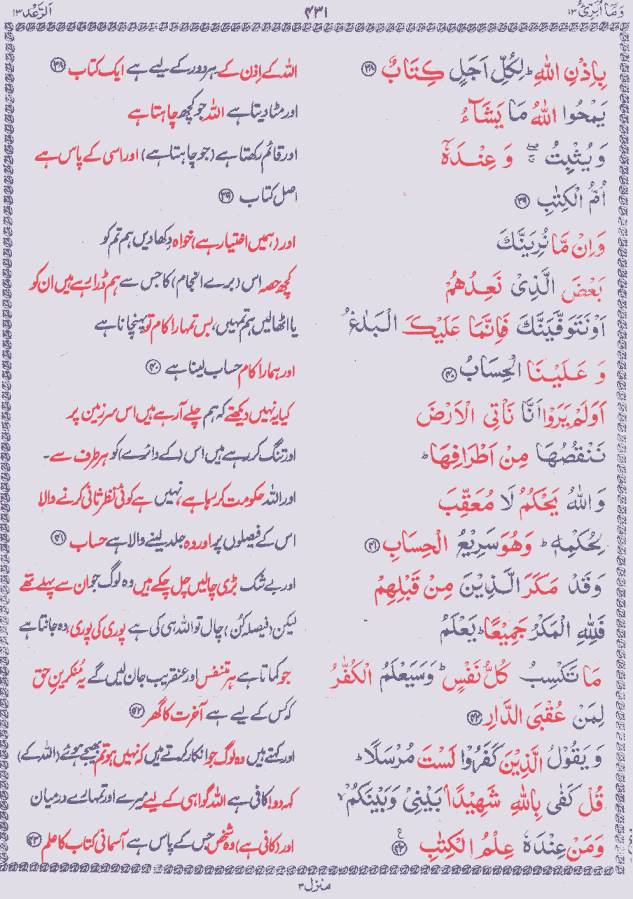 وَمَآ اُبَرِّئُ ١٣
٤٣١
اَلرَّعْد ١٣
بِاِذْنِ اللّٰهِ ؕ لِكُلِّ اَجَلٍ كِتَابٌ ﴿٣٨﴾
اللہ کے اِذن کے ہر دور کے لیے ہے ایک کتاب ﴿٣٨﴾
يَمْحُوا اللّٰهُ مَا يَشَآءُ
اور مٹا دیتا ہے اللہ جو کچھ چاہتا ہے
وَ يُثْبِتُ ۖ وَ عِنْدَهٗۤ
اور قائم رکھتا ہے (جو چاہتا ہے) اور اسی کے پاس ہے
اُمُّ الْكِتٰبِ ﴿٣٩﴾
اصل کتاب ﴿٣٩﴾
وَاِنْ مَّا نُرِيَنَّكَ
اور (ہمیں اختیار ہے) خواہ دکھا دیں ہم تم کو
بَعْضَ الَّذِىْ نَعِدُهُمْ
کچھ حصہ اس (برے انجام) کا جس سے ہم ڈرا رہے ہیں ان کو
اَوْ نَتَوَفَّيَنَّكَ فَاِنَّمَا عَلَيْكَ الْبَلٰغُ
یا اٹھا لیں ہم تمہیں، بس تمہارا کام تو پہنچانا ہے
وَ عَلَيْنَا الْحِسَابُ ﴿٤٠﴾
اور ہمارا کام حساب لینا ہے ﴿٤٠﴾
اَوَلَمْ يَرَوْا اَنَّا نَاْتِى الْاَرْضَ
کیا یہ نہیں دیکھتے کہ ہم چلے آ رہے ہیں اس سرزمین پر
نَنْقُصُهَا مِنْ اَطْرَافِهَا ؕ
اور تنگ کر رہے ہیں اس (کے دائرے) کو ہر طرف سے۔
وَاللّٰهُ يَحْكُمُ لَا مُعَقِّبَ
اور اللہ حکومت کر رہا ہے، نہیں ہے کوئی نظر ثانی کرنے والا
لِحُكْمِهٖ ؕ وَهُوَ سَرِيْعُ الْحِسَابِ ﴿٤١﴾
اس کے فیصلوں پر اور وہ جلد لینے والا ہے حساب ﴿٤١﴾
وَقَدْ مَكَرَ الَّذِيْنَ مِنْ قَبْلِهِمْ
اور بے شک بڑی چالیں چل چکے ہیں وہ لوگ جو ان سے پہلے تھے
فَلِلّٰهِ الْمَكْرُ جَمِيْعًا ؕ يَعْلَمُ
لیکن (فیصلہ کن) چال تو اللہ ہی کی ہے پوری کی پوری، وہ جانتا ہے
مَا تَكْسِبُ كُلُّ نَفْسٍ ؕ وَسَيَعْلَمُ الْكُفّٰرُ
جو کماتا ہے ہر متنفس اور عنقریب جان لیں گے یہ منکرینِ حق
لِمَنْ عُقْبَى الدَّارِ ﴿٤٢﴾
کہ کس کے لیے ہے آخرت کا گھر ﴿٤٢﴾
وَ يَقُوْلُ الَّذِيْنَ كَفَرُوْا لَسْتَ مُرْسَلًا ؕ
اور کہتے ہیں وہ لوگ جو انکار کرتے ہیں کہ نہیں ہو تم بھیجے ہوئے (اللہ کے)
قُلْ كَفٰى بِاللّٰهِ شَهِيْدًاۢ بَيْنِىْ وَبَيْنَكُمْ ۙ
کہہ دو! کافی ہے اللہ گواہی کے لیے میرے اور تمہارے درمیان
وَمَنْ عِنْدَهٗ عِلْمُ الْكِتٰبِ ﴿٤٣﴾ ع
اور (کافی ہے) وہ شخص جس کے پاس ہے آسمانی کتاب کا علم ﴿٤٣﴾
منزل ٣